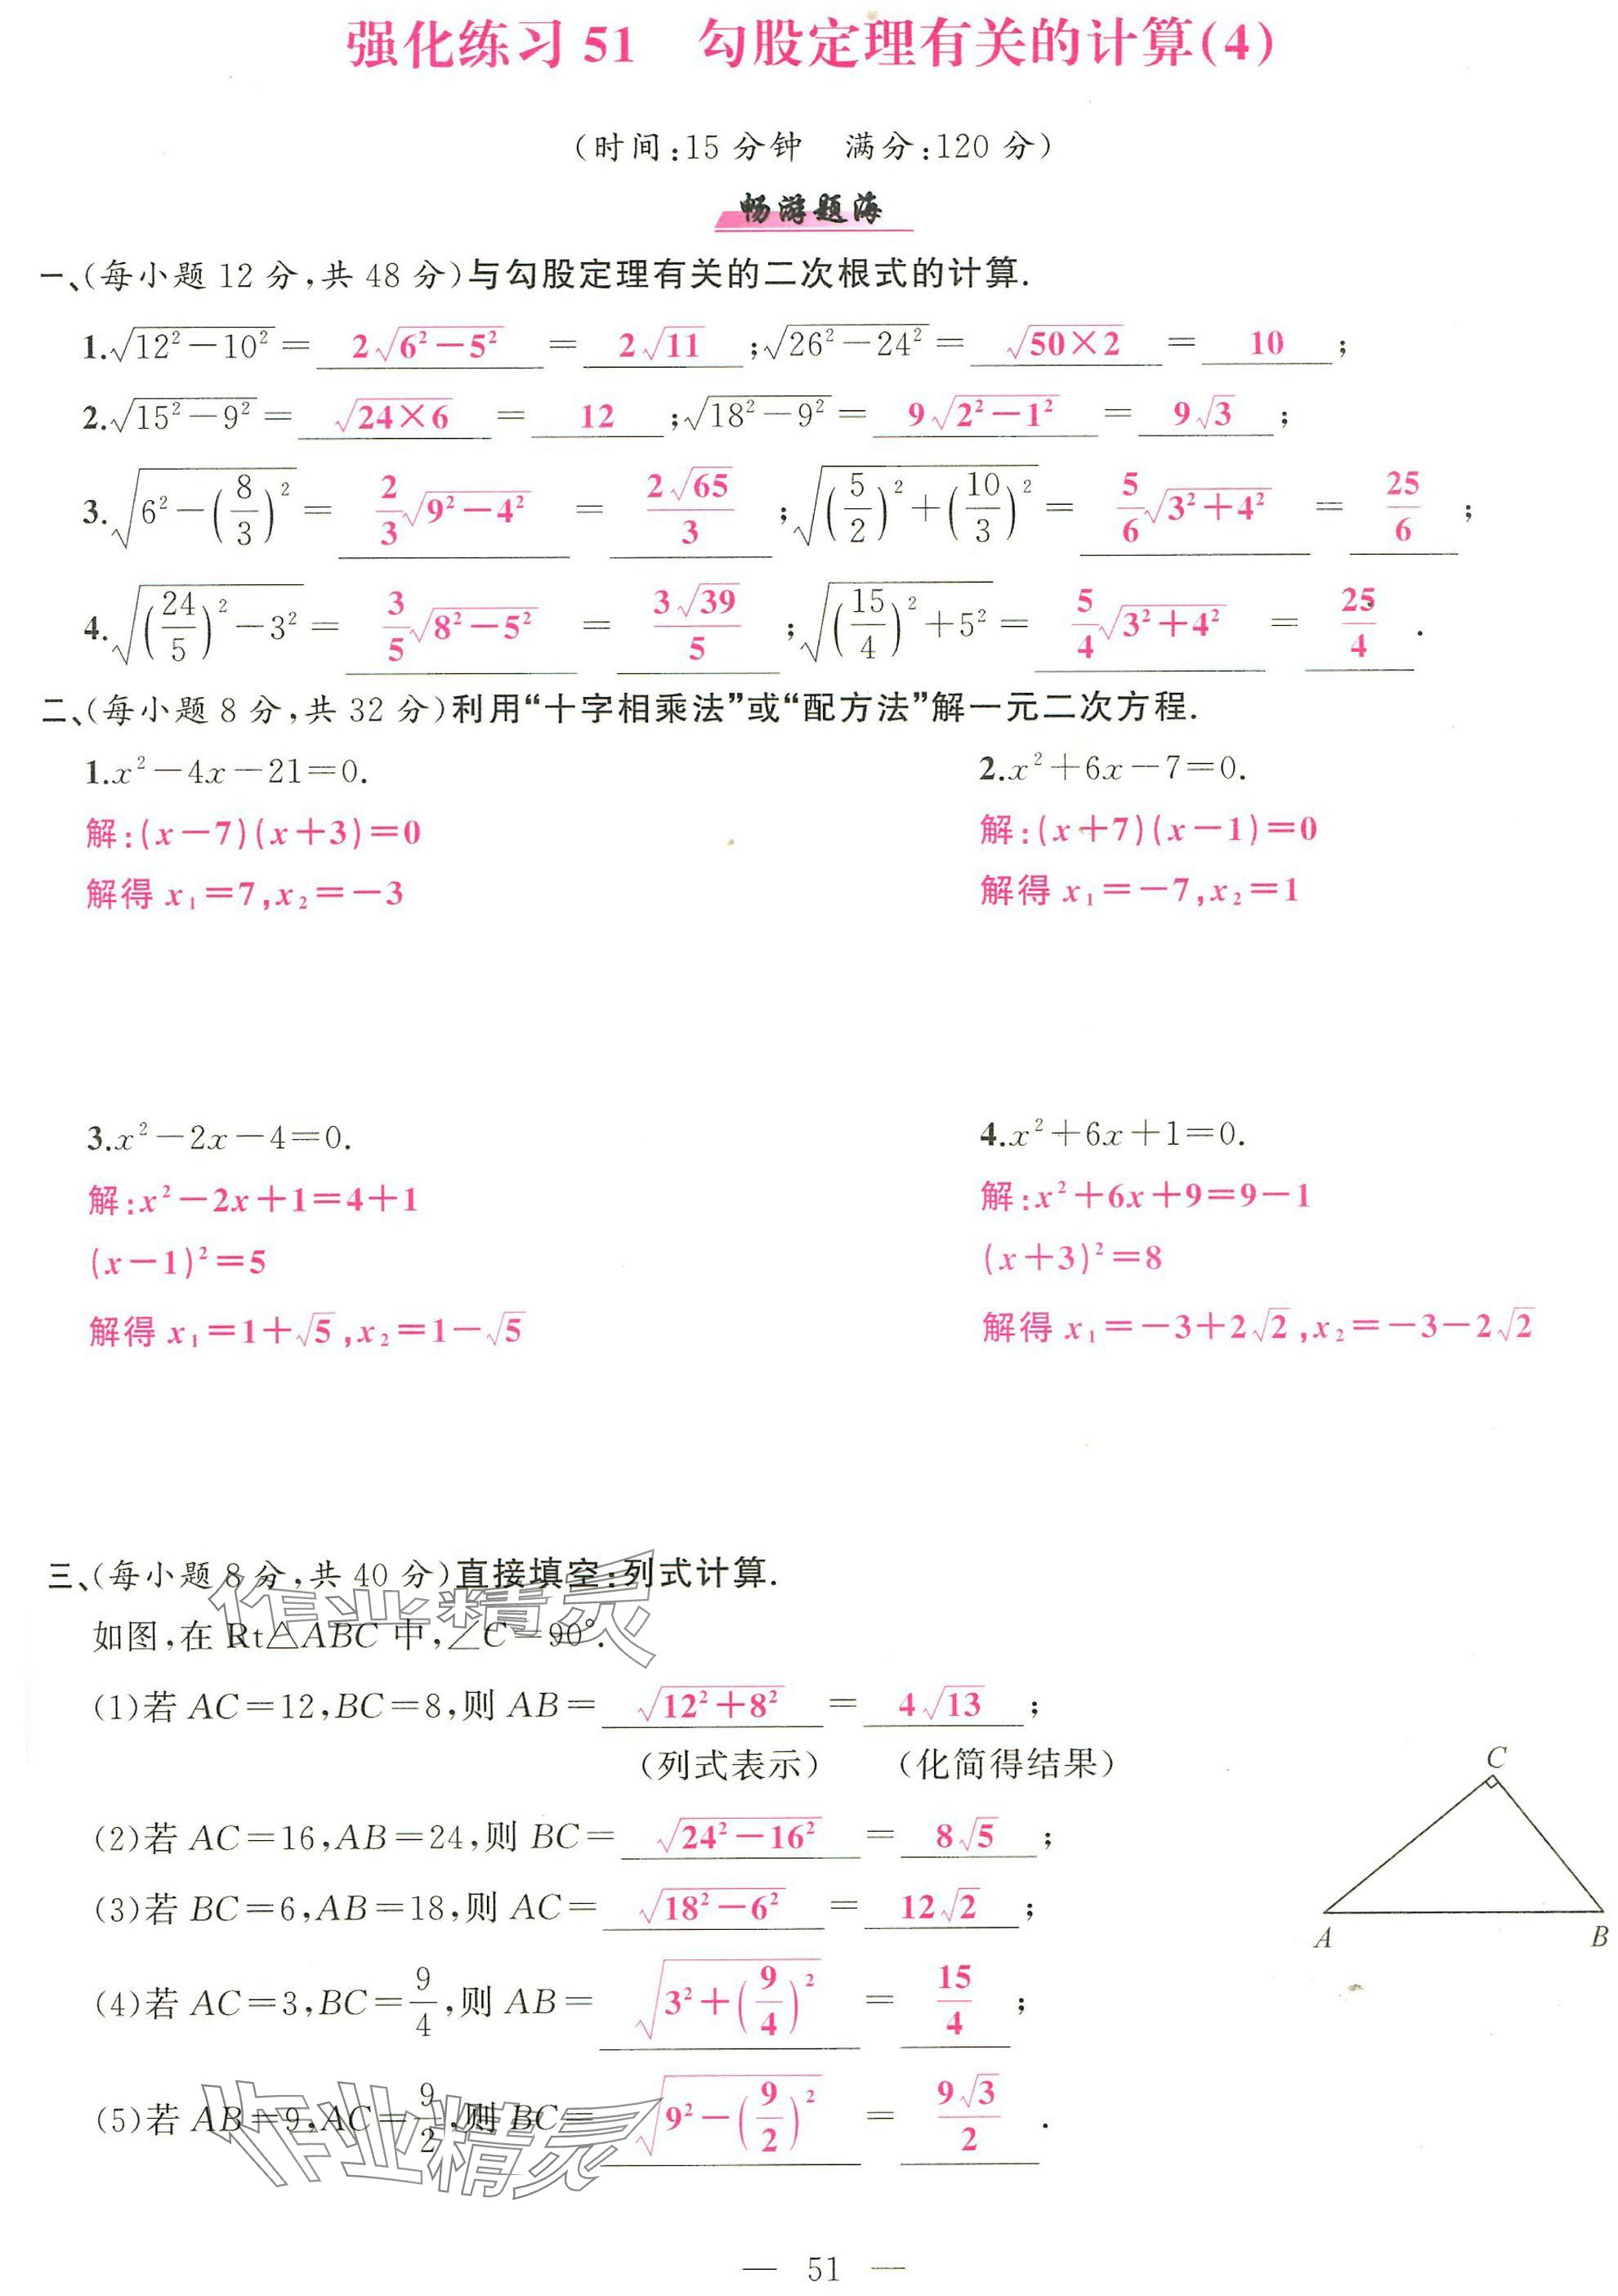 强化练习 51　勾股定理有关的计算(4)
(时间:15 分钟　满分:120 分)
畅游题海
一、(每小题 12 分,共 48 分)与勾股定理有关的二次根式的计算.
1.√(12²－10²)＝ 2√(6²－5²) ＝ 2√11 ;√(26²－24²)＝ √(50×2) ＝ 10 ;
2.√(15²－9²)＝ √(24×6) ＝ 12 ;√(18²－9²)＝ 9√(2²－1²) ＝ 9√3 ;
3.√(6²－(8/3)²)＝ 2/3√(9²－4²) ＝ 2√65/3 ;√((5/2)²＋(10/3)²)＝ 5/6√(3²＋4²) ＝ 25/6 ;
4.√((24/5)²－3²)＝ 3/5√(8²－5²) ＝ 3√39/5 ;√((15/4)²＋5²)＝ 5/4√(3²＋4²) ＝ 25/4 .
二、(每小题 8 分,共 32 分)利用“十字相乘法”或“配方法”解一元二次方程.
1.x²－4x－21＝0.
解:(x－7)(x＋3)＝0
解得 x₁＝7,x₂＝－3
2.x²＋6x－7＝0.
解:(x＋7)(x－1)＝0
解得 x₁＝－7,x₂＝1
3.x²－2x－4＝0.
解:x²－2x＋1＝4＋1
(x－1)²＝5
解得 x₁＝1＋√5,x₂＝1－√5
4.x²＋6x＋1＝0.
解:x²＋6x＋9＝9－1
(x＋3)²＝8
解得 x₁＝－3＋2√2,x₂＝－3－2√2
三、(每小题 8 分,共 40 分)直接填空:列式计算.
作业精灵
如图,在 Rt△ABC 中,∠C＝90°.
(1)若 AC＝12,BC＝8,则 AB＝ √(12²＋8²) ＝ 4√13 ;
(列式表示)　(化简得结果)
(2)若 AC＝16,AB＝24,则 BC＝ √(24²－16²) ＝ 8√5 ;
(3)若 BC＝6,AB＝18,则 AC＝ √(18²－6²) ＝ 12√2 ;
(4)若 AC＝3,BC＝9/4,则 AB＝ √(3²＋(9/4)²) ＝ 15/4 ;
(5)若 AB＝9,AC＝9/2,则 BC＝ √(9²－(9/2)²) ＝ 9√3/2 .
作业精灵
C
A
B
— 51 —